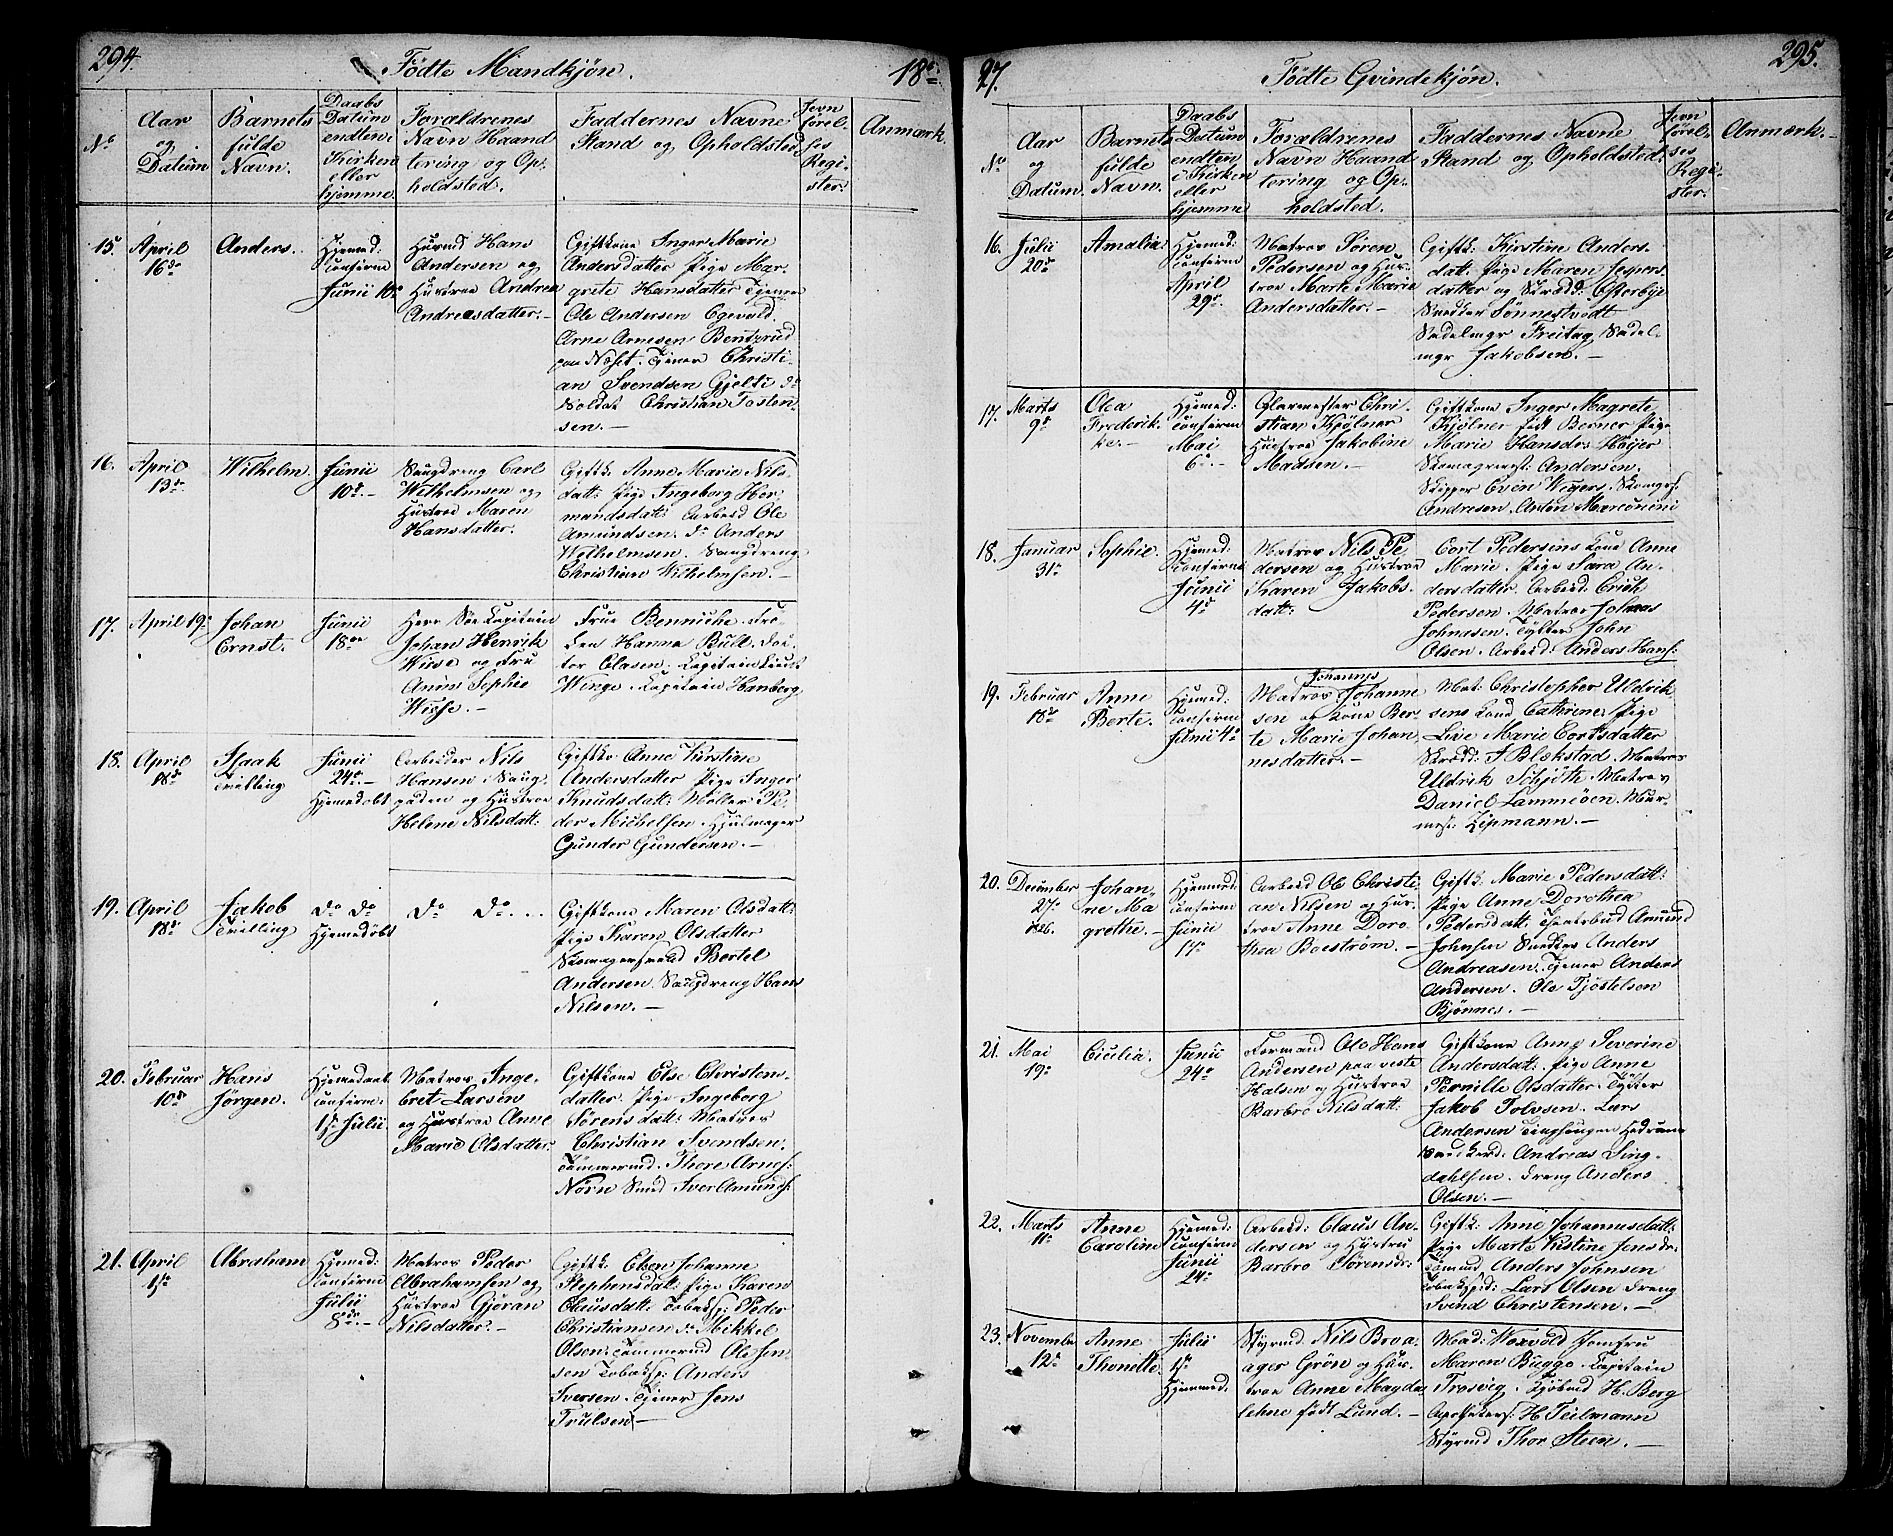 294.
Fødte Mandkjøn.
18
No
Aar og Datum
Barnets fulde Navn.
Daabs Datum endten i Kirken eller hjemme
Forældrenes Navn Haandtering og Opholdsted.
Faddernes Navne Stand og Opholdsted
Jevnførelses Register.
Anmærk.
15.
April
16de
Anders.
Hjemed:
confirm
Junii 10de
Hans
Andersen og
Hustroe Andrea
Andreasdatter.
Giftkone Inger Marie
Andersdatter Pige Mar-
grete Hansdatter Tjener
Ole Andersen Egevold.
Arne Arnesen Bentzrud
paa Næset. Tjener Christi-
an Svendsen Gjelti do
Soldat Christian Tosten-
sen.
16.
April
13de
Wilhelm.
Junii
10de
Saugdreng Carl
Wilhelmsen og
Hustroe Maren
Hansdatter.
Giftk. Anne Marie Nils
datt: Pige Ingeborg Her-
mandsdatt: Arbeid Ole
Amundsen. do Anders
Wilhelmsen. Saugdreng
Christian Wilhelmsen.
17.
April 19de
Johan
Ernst.
Junii
18de
Herr Søe Kapitain
Johan Henrik
Wiese og Fru
Anne Sophie
Wiese.
Frue Benniche. Frø-
ken Hanna Bull. Doc-
tor Olesen. Kapitain
Winge. Kapitain Hanberg
18.
April
18de
Isaak
Tvilling
Junii
24de
Hjemedøbt
Arbeider Nils
Hansen Saug-
paden og Hustroe
Helene Nilsdatt:
Giftko. Anne Kirstine
Andersdatter Pige Inger
Knudsdatt: Møller Pe-
der Michelsen. Hjulmager
Gunder Gundersen.
19.
April
18de
Jakob
Tvilling
do do
Hjemedøbt
do do
Giftkone Maren Olsdatt:
Pige Karen Olsdatter
Skomagersvend Bertel
Andersen Saugdreng Hans
Nilsen.
20.
Februar
10de
Hans
Jørgen.
Hjemedøbt
confirm:
1ste Julii
Matros Inge-
bret Larsen
og Hustroe Anne
Marie Olsdatter
Giftkone Else Christens-
datter. Pige Ingeborg
Sørensdatt: Matros
Christian Svendsen.
Tømmermd. Thore Arnes:
Nørn Smed Iver Amunds:
21.
April
1ste
Abraham
Hjemed:
confirm
Julii
8de
Matros Peder
Abrahamsen og
Hustroe Gjøran
Nilsdatter.
Giftk. Elen Johanne
Stephensdatt: Pige Karen
Clausdatt: Tobaksp: Peder
Christiansen do Mikkel
Olsen: Tømmermd Ole Jen-
sen Tobaksp: Anders
Iversen. Tjener Jens
Trulsen
27.
Fødte Qvindekjøn.
295.
No
Aar og Datum.
Barnets fulde Navn.
Daabs Datum endten i Kirken eller hjemme
Forældrenes Navn Haandtering og Opholdsted.
Faddernes Navne Stand og Opholdsted.
Jevnførelses Register.
Anmærk.
16.
Julii
20de
Amalia
Hjemed:
confirm
April
29de
Matros Søren
Pedersen og Hus-
troe Marte Marie
Andersdatter.
Giftk: Kirstine Anders
datt: Pige Maren Jespers-
datter og Skrædd: Østerbye
Snedker Sønnestvedt
Sadelmgr Freitag Sadel-
mgr Jakobsen.
17.
Marts
9de
Olea
Frederik-
ke.
Hjemed:
confirm
Mai
6te
Glarmester Chri-
stian Kjølner
Hustroe Jakobine
Madsen.
Giftkone Inger Magrete
Kjølner født Berner Pige
Marie Hansdr Høyer
Skomagermest: Andersen.
Skipper Even Wegers. Skomgrs.
Andresen. Anton Marconini
18.
Januar
31te
Sophie.
Hjemed:
confirm
Junii
4de
Matros Nils Pe-
dersen og Hustroe
Karen Jakobs
datt:
Cort Pedersens Kone Anne
Marie. Pige Sara An-
dersdatter Arbeid: Erich
Pedersen. Matros Johnas
Johnasen. Tylter John
Olsen. Arbeid: Anders Hans:
19.
Februar
18de
Anne
Berte.
Hjemed:
confirm
Junii 4de
Matros Johannes Johanne
sen og Kone Ber-
te Marie Johan
nesdatter.
Mat: Christopher Uldrik
sens Kone Cathrine. Pige
Live Marie Cortsdatter
Skrædd: J Blekstad. Matros
Uldrik Schjøth. Matros
Daniel Lammeøen. Mur-
mest: Lipmann.
20.
December
27de
1826.
Johan-
ne Ma
grethe.
Hjemmed:
confirm
Junii
17de
Arbeid Ole Christi-
an Nilsen og Hus-
troe Anne Doro
thea Boeström.
Giftk: Marie Pedersdatt:
Pige Anne Dorothea
Pedersdatt. Amund
Johnsen Snedker Anders
Andreasen. Tjener Anders
Andersen. Ole Tjøstelsen
Bjønnes.
21.
Mai
19de
Cicilia.
Junii
24de
Formand Ole Hans
Andersen paa veste
Halsen og Hustroe
Barbro Nilsdatt:
Giftkone Anne Severine
Andersdatt: Pige Anne
Pernille Olsdatter. Tylter
Jakob Tolvsen. Lars
Andersen Tinghaugen Hedrum
Snedkersd: Andreas Ling-
dahlsen. dreng Anders
Olsen.
22.
Marts
11te
Anne
Caroline
Hjemed:
confirm
Junii
24de
Arbeid: Claus An-
dersen og Hustru
Barbro Sørensdr:
Giftk: Anne Johannesdatt:
Pige Marte Kistine Jensdr.
Tømmd Anders Johnsen
Tobakspd: Lars Olsen dreng
Svend Christensen.
23.
November
12te
Anne
Thonette.
Julii
1ste
Hjemmed.
Styrmd Nils Broa-
ager Grøn og Hus-
troe Anne Magda-
lehne født Lund.
Mad: Woxvold Jomfru
Maren Bugge. Capitain
Trosvig. Kjøbmd H. Berg
Apotheker: H Teilmann
Styrmd Thor Steen.